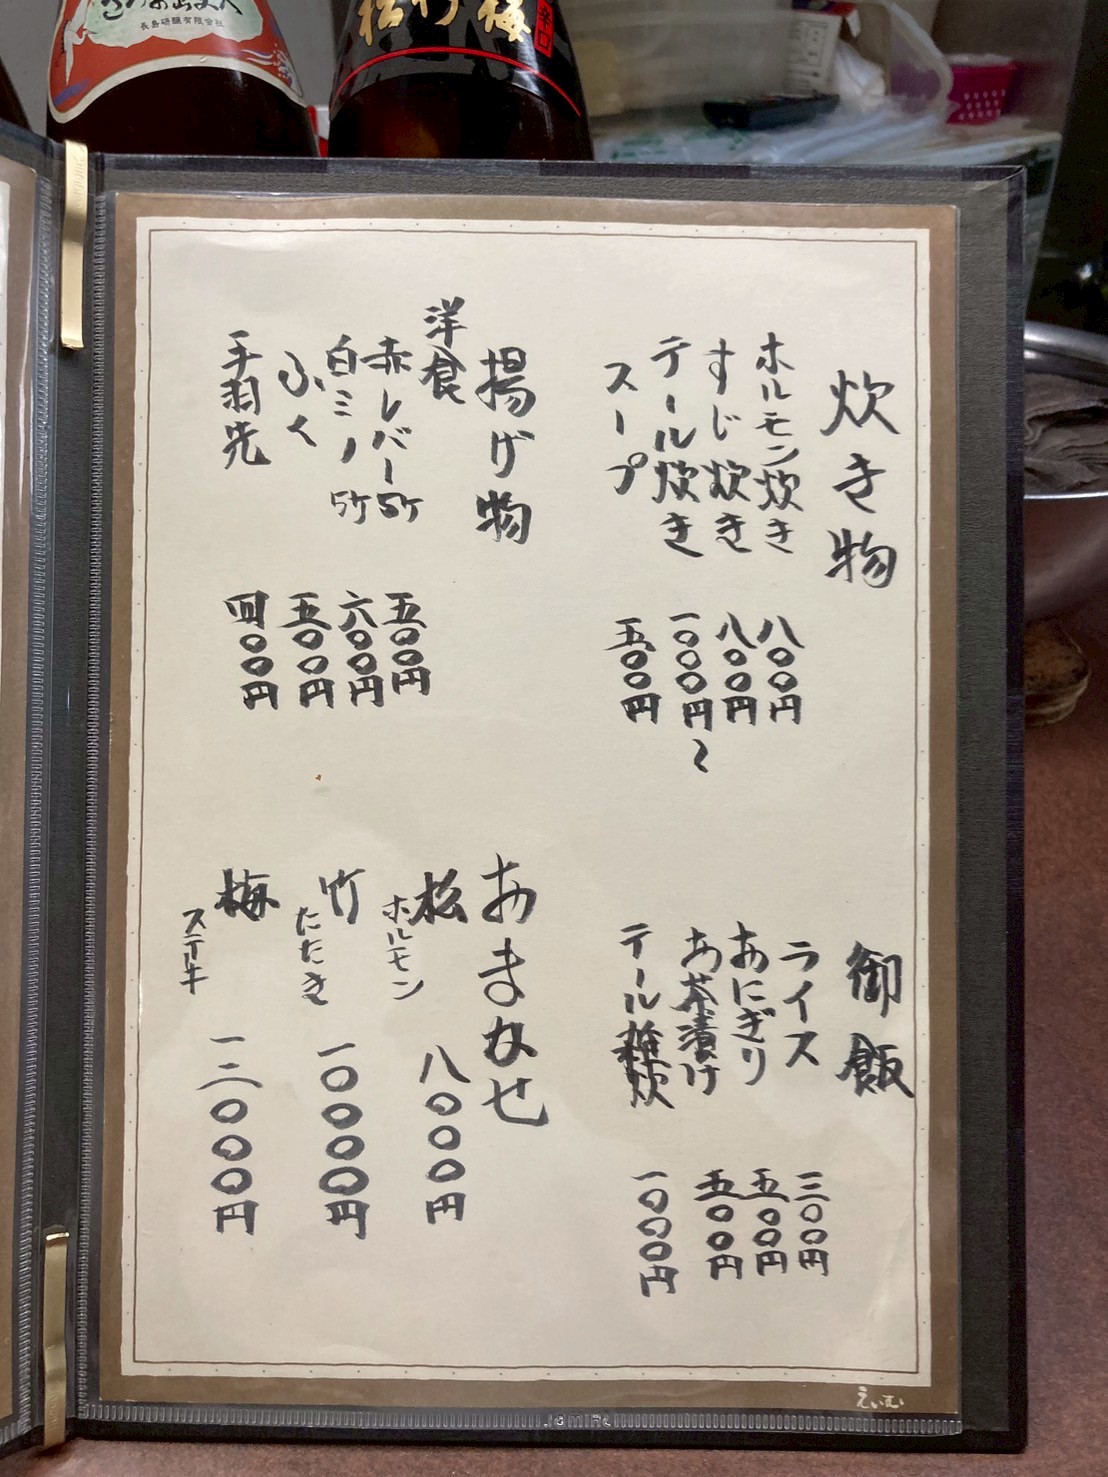 長島研醸有限会社
松竹梅
辛口
炊き物
ホルモン炊き 八〇〇円
すじ炊き 八〇〇円
テール炊き 一〇〇〇円〜
スープ 五〇〇円
揚げ物
洋食
赤レバー5ケ 五〇〇円
白ミノ 5ケ 六〇〇円
ふく 五〇〇円
手羽先 四〇〇円
御飯
ライス 三〇〇円
おにぎり 五〇〇円
お茶漬け 五〇〇円
テール雑炊 一〇〇〇円
おまかせ
松 ホルモン 八〇〇〇円
竹 たたき 一〇〇〇〇円
梅 ステーキ 一二〇〇〇円
えいむ